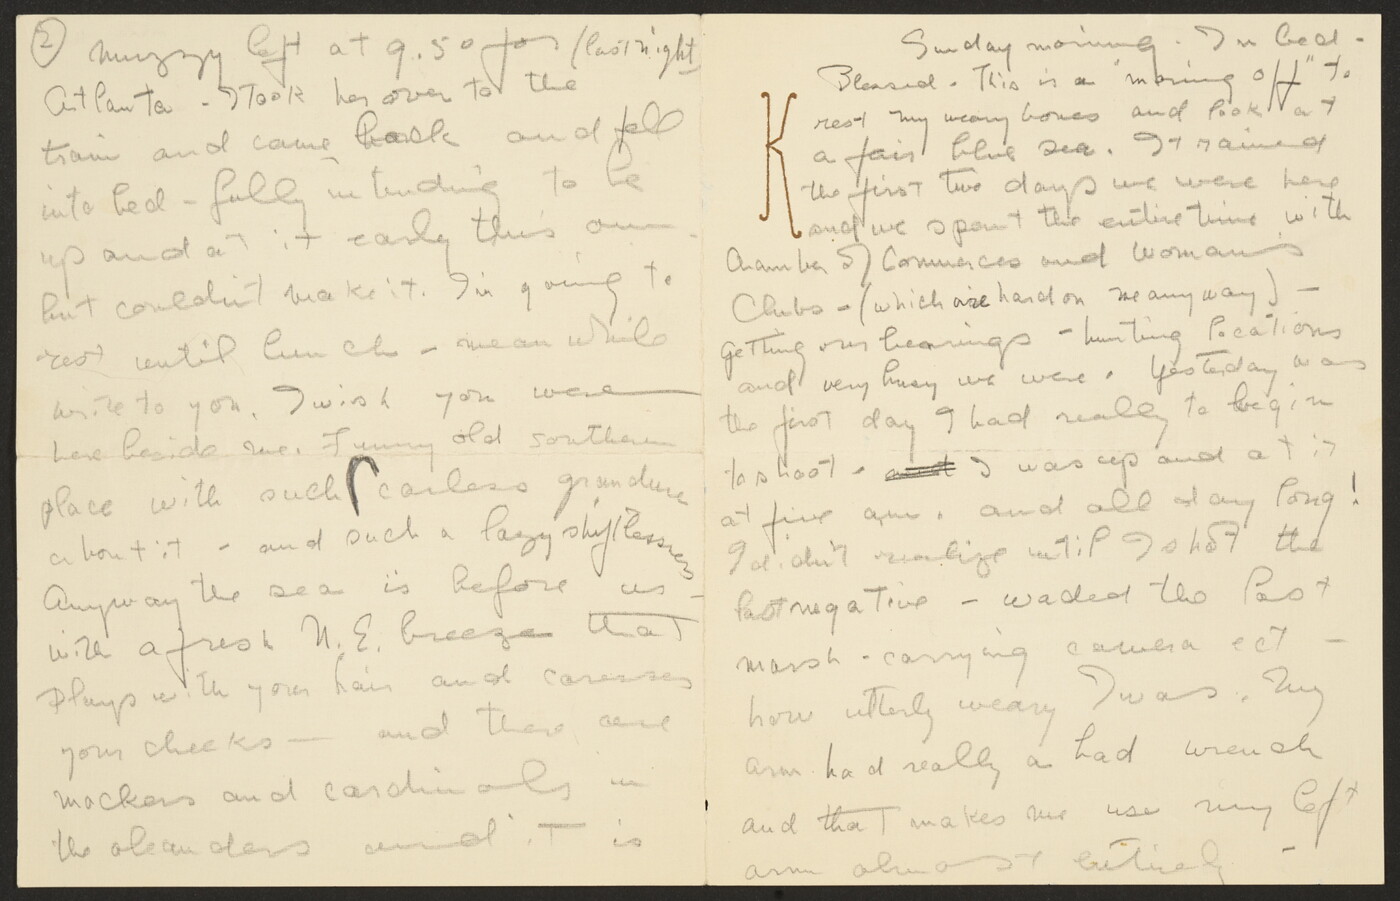 Sunday morning. In bed -
Blessed - This is a "morning off" to
rest my weary bones and look at
K
a fair blue sea. It rained
the first two days we were here
and we spent the entire time with
Chamber of Commerces and Woman's
Clubs - (which are hard on me anyway) -
getting our bearings - hunting locations
and very busy we were. Yesterday was
the first day I had really to begin
to shoot - and I was up and at it
at five am. and all day long!
I didn't realize until I shot the
last negative - waded the last
marsh - carrying camera ect -
how utterly weary I was. My
arm had really a bad wrench
and that makes me use my left
arm almost entirely -
②
muzzy left at 9.50 for (last night
Atlanta - I took her over to the
train and came back and fell
into bed - fully intending to be
up and at it early this am -
but couldn't make it. I'm going to
rest until lunch - mean while
write to you. I wish you were
here beside me. Funny old southern
place with such careless grandure
about it - and such a lazy shiftlessness
Anyway the sea is before us -
with a fresh N.E. breeze that
plays with your hair and caresses
your cheeks - and there are
mockers and cardinals in
the oleanders and it is